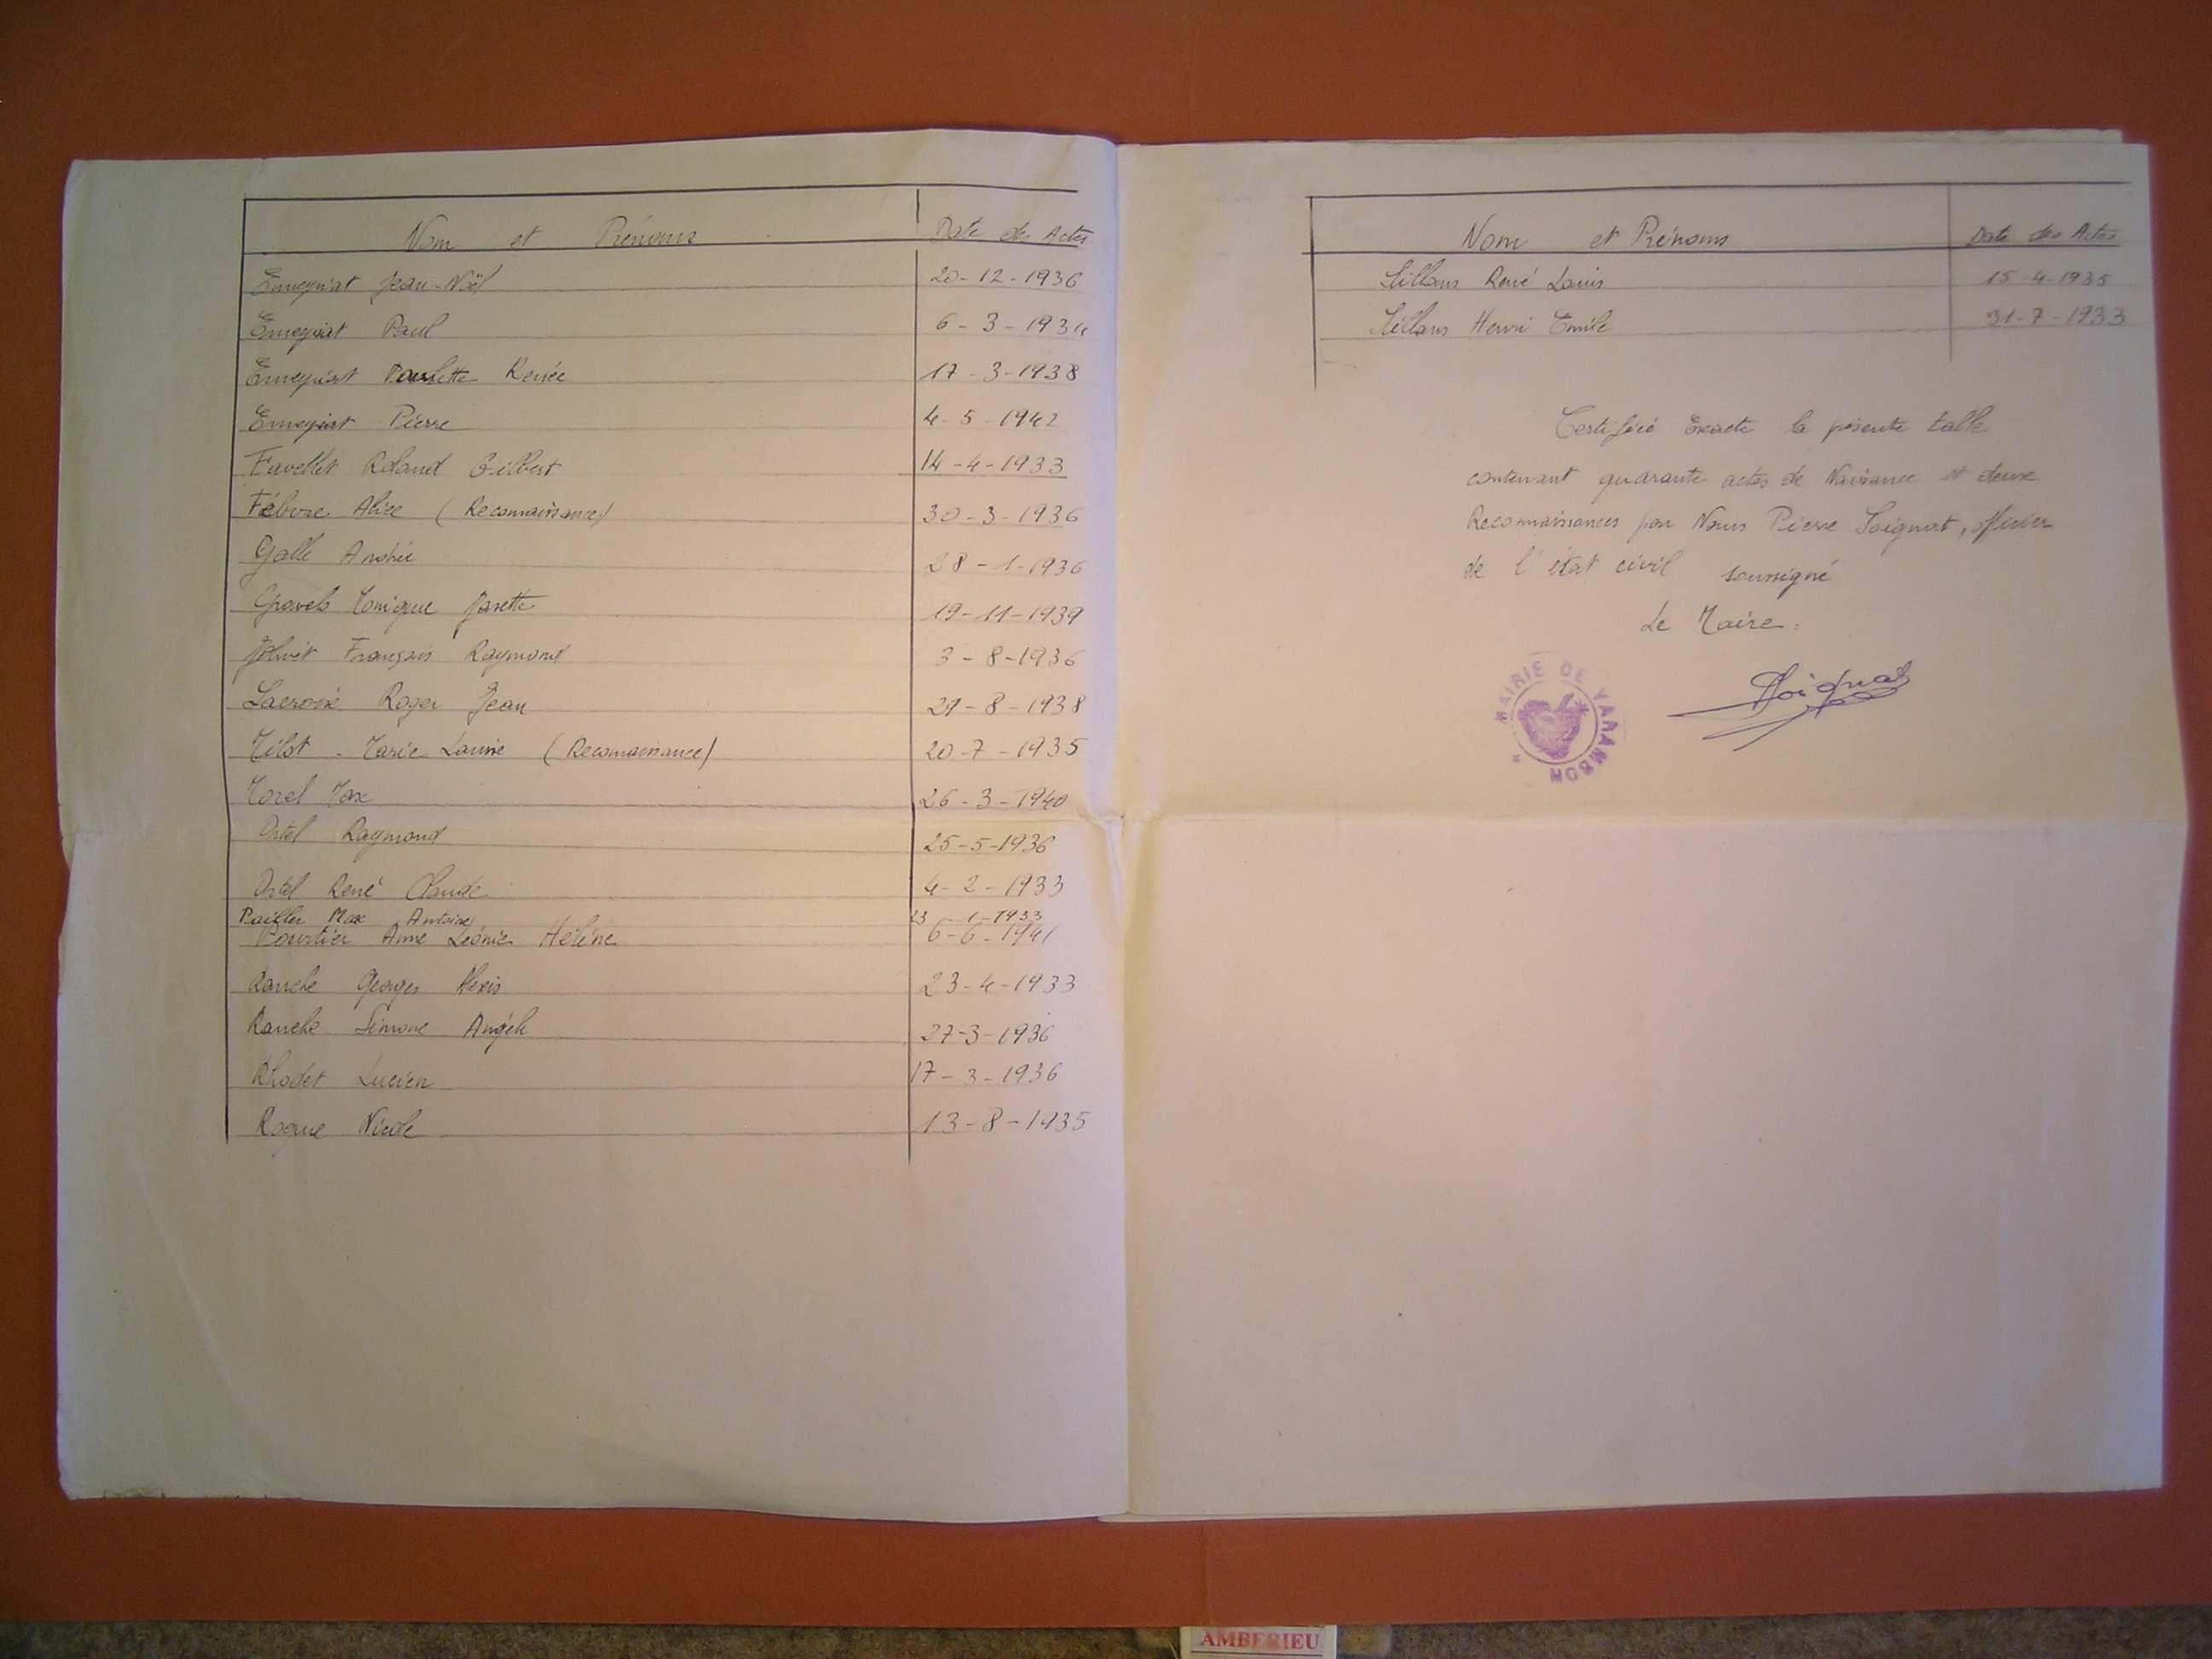 Nom et Prénoms Date des Actes
Emeyriat Jean-Noël 20-12-1936
Emeyriat Paul 6-3-1934
Emeyriat Paulette Renée 17-3-1938
Emeyriat Pierre 4-5-1942
Favellet Roland Gilbert 14-4-1933
Fébvre Alice (Reconnaissance) 30-3-1936
Galle Andrée 28-1-1936
Monique Josette 19-11-1939
Jolivet François Raymond 3-8-1936
Lacroix Roger Jean 29-8-1938
Milot - Marie Louise (Reconnaissance) 20-7-1935
Morel Max 26-3-1940
Ostel Raymond 25-5-1936
Ostel René Claude 4-2-1933
Pailler Max Antoine 23-1-1933
Pourtier Anne Léonie Hélène 6-6-1941
Ranche Georges Alexis 23-4-1933
Ranche Simone Angèle 27-3-1936
Rhodet Lucien 17-3-1936
Rogue Nicole 13-8-1935
Nom et Prénoms Date des Actes
Sillans René Louis 15-4-1935
Sillans Henri Emile 31-7-1933
Certifiée Exacte la présente table
contenant quarante actes de Naissance et deux
Reconnaissances par Nous Pierre Soignat, officier
de l'état civil soussigné
Le Maire:
MAIRIE DE VARAMBON
Soignat
AMBERIEU